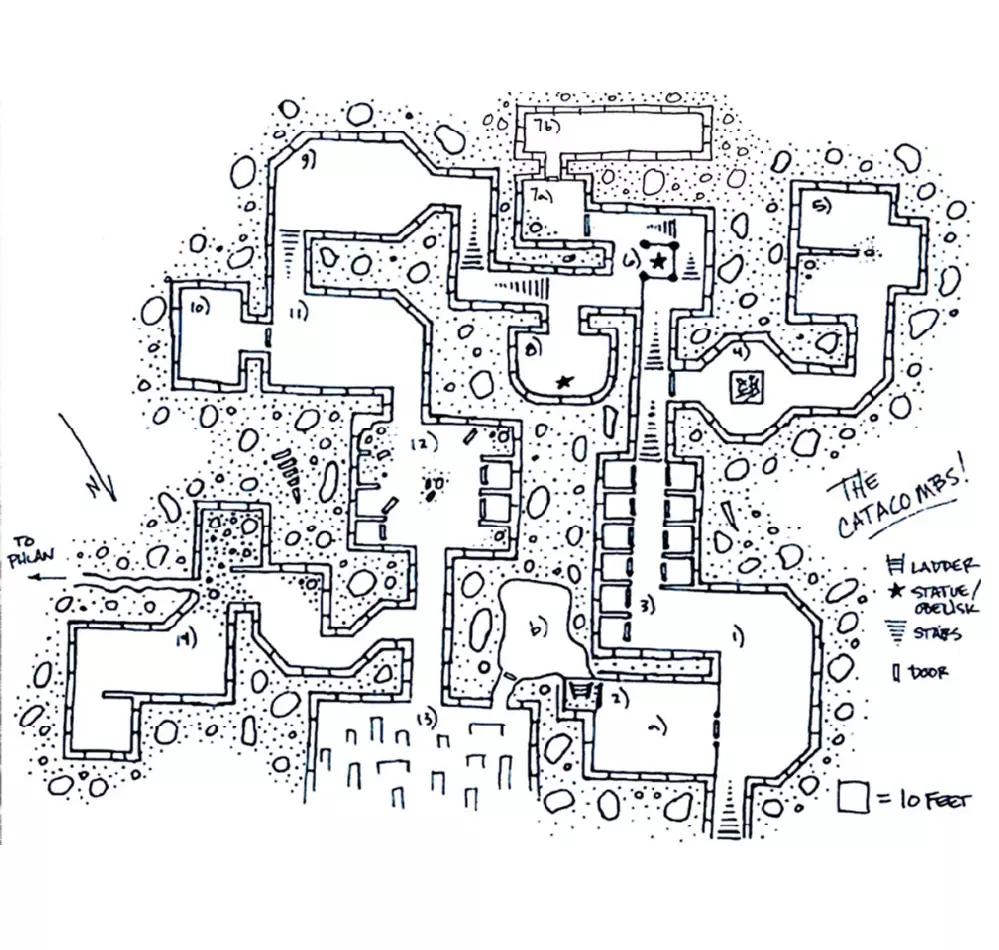 7b)
9)
7a)
5)
6)
10)
11)
8)
4)
12)
THE
CATACOMBS!
N
TO
PHLAN
LADDER
STATUE/
OBELISK
STAIRS
DOOR
3)
1)
b)
14)
2)
a)
13)
= 10 FEET